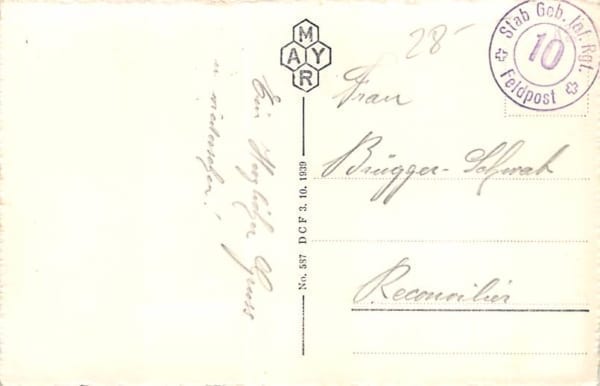 MAYR
28-
Stab Geb. Inf. Rgt.
10
Feldpost
Frau
Brügger-Schwab
Reconvilier
No. 587 D C F 3. 10. 1939
Ein Herzlicher Gruss
u wiedersehen!